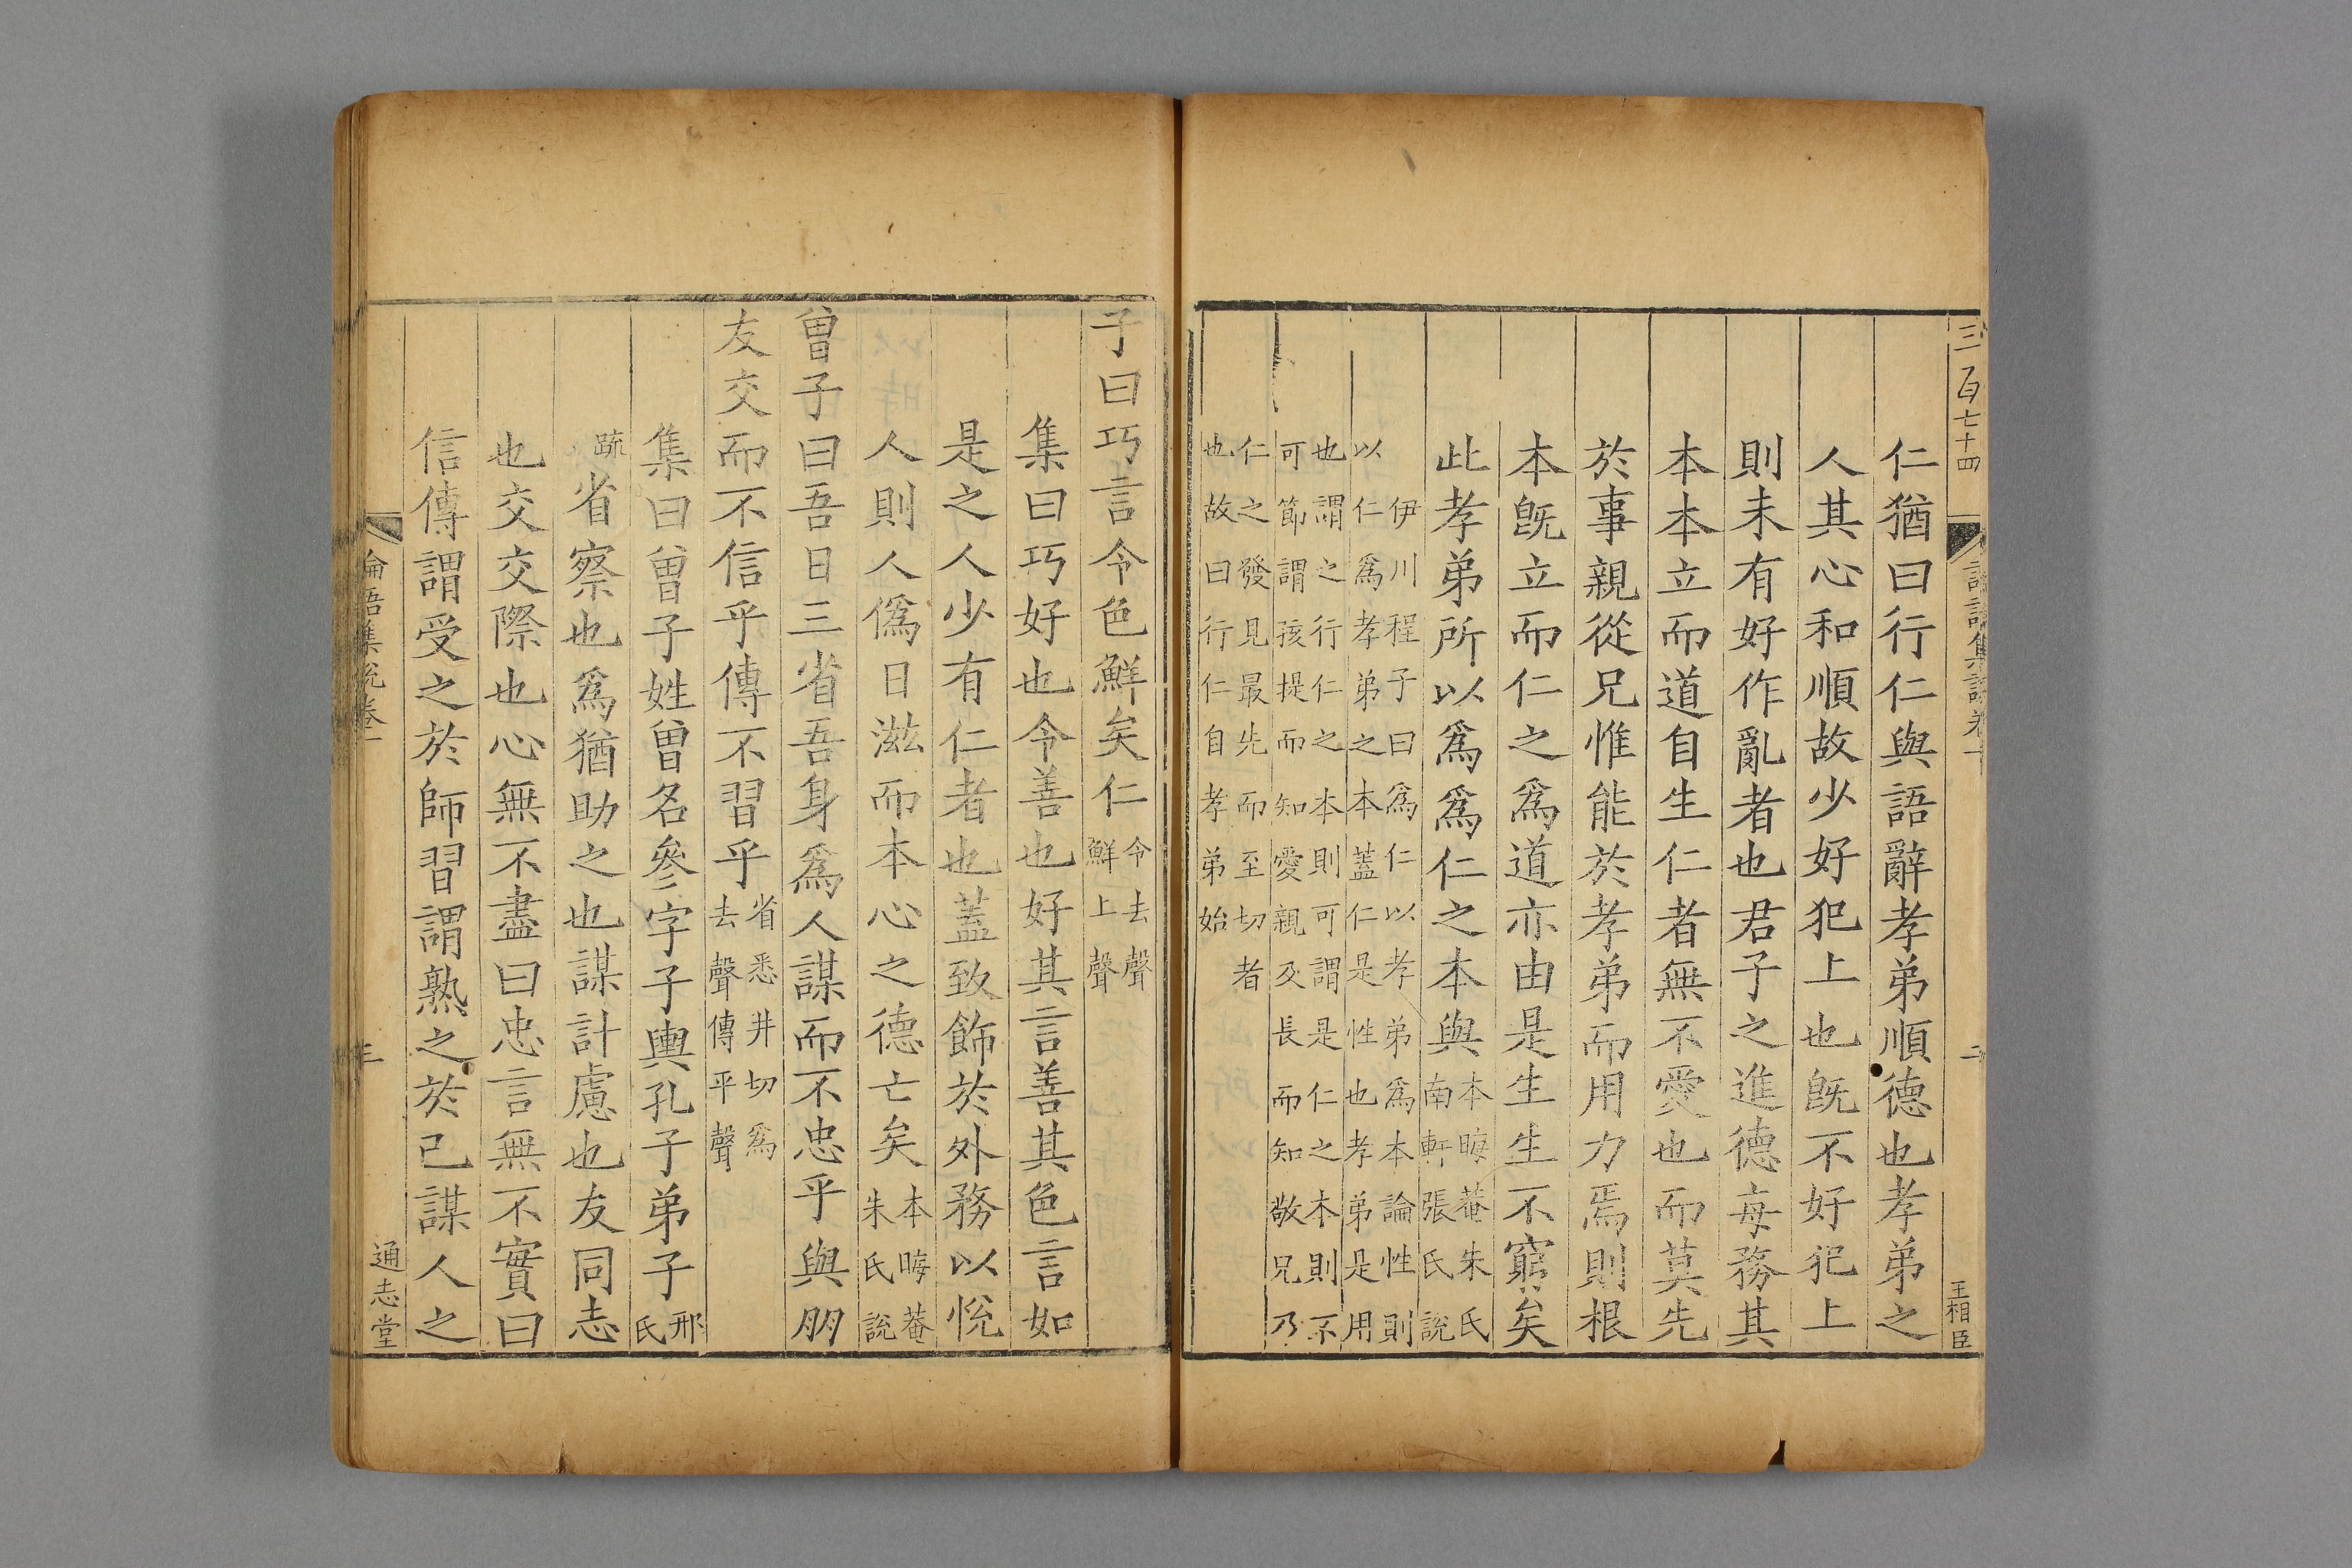 三百七十四
集說卷一
二
王相臣
仁猶曰行仁與語辭孝弟順德也孝弟之
人其心和順故少好犯上也旣不好犯上
則未有好作亂者也君子之進德每務其
本本立而道自生仁者無不愛也而莫先
於事親從兄惟能於孝弟而用力焉則根
本旣立而仁之爲道亦由是生生不窮矣
此孝弟所以爲爲仁之本與
本晦菴朱氏
南軒張氏說
伊川程子曰爲仁以孝弟爲本論性則
以仁爲孝弟之本蓋仁是性也孝弟是用
也謂之行仁之本則可謂是仁之本則不
可節謂孩提而知愛親及長而知敬兄乃
仁之發見最先而至切者
也故曰行仁自孝弟始
子曰巧言令色鮮矣仁
令去聲
鮮上聲
集曰巧好也令善也好其言善其色言如
是之人少有仁者也蓋致飾於外務以悅
人則人僞日滋而本心之德亡矣
本晦菴
朱氏說
曾子曰吾日三省吾身爲人謀而不忠乎與朋
友交而不信乎傳不習乎
省悉井切爲
去聲傳平聲
集曰曾子姓曾名參字子輿孔子弟子
邢
氏
疏
省察也爲猶助之也謀計慮也友同志
也交交際也心無不盡曰忠言無不實曰
信傳謂受之於師習謂熟之於己謀人之
論語集說卷一
三
通志堂